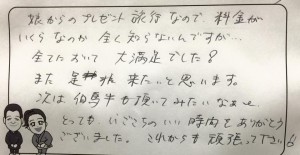 娘からのプレゼント旅行なので、料金が
いくらなのか全く知らないんですが…
全てにおいて 大満足でした!
また是非来たいと思います。
次は但馬牛も頂いてみたいなぁ〜
とっても、いごこちのいい時間をありがとう
ございました。これからも頑張って下さい